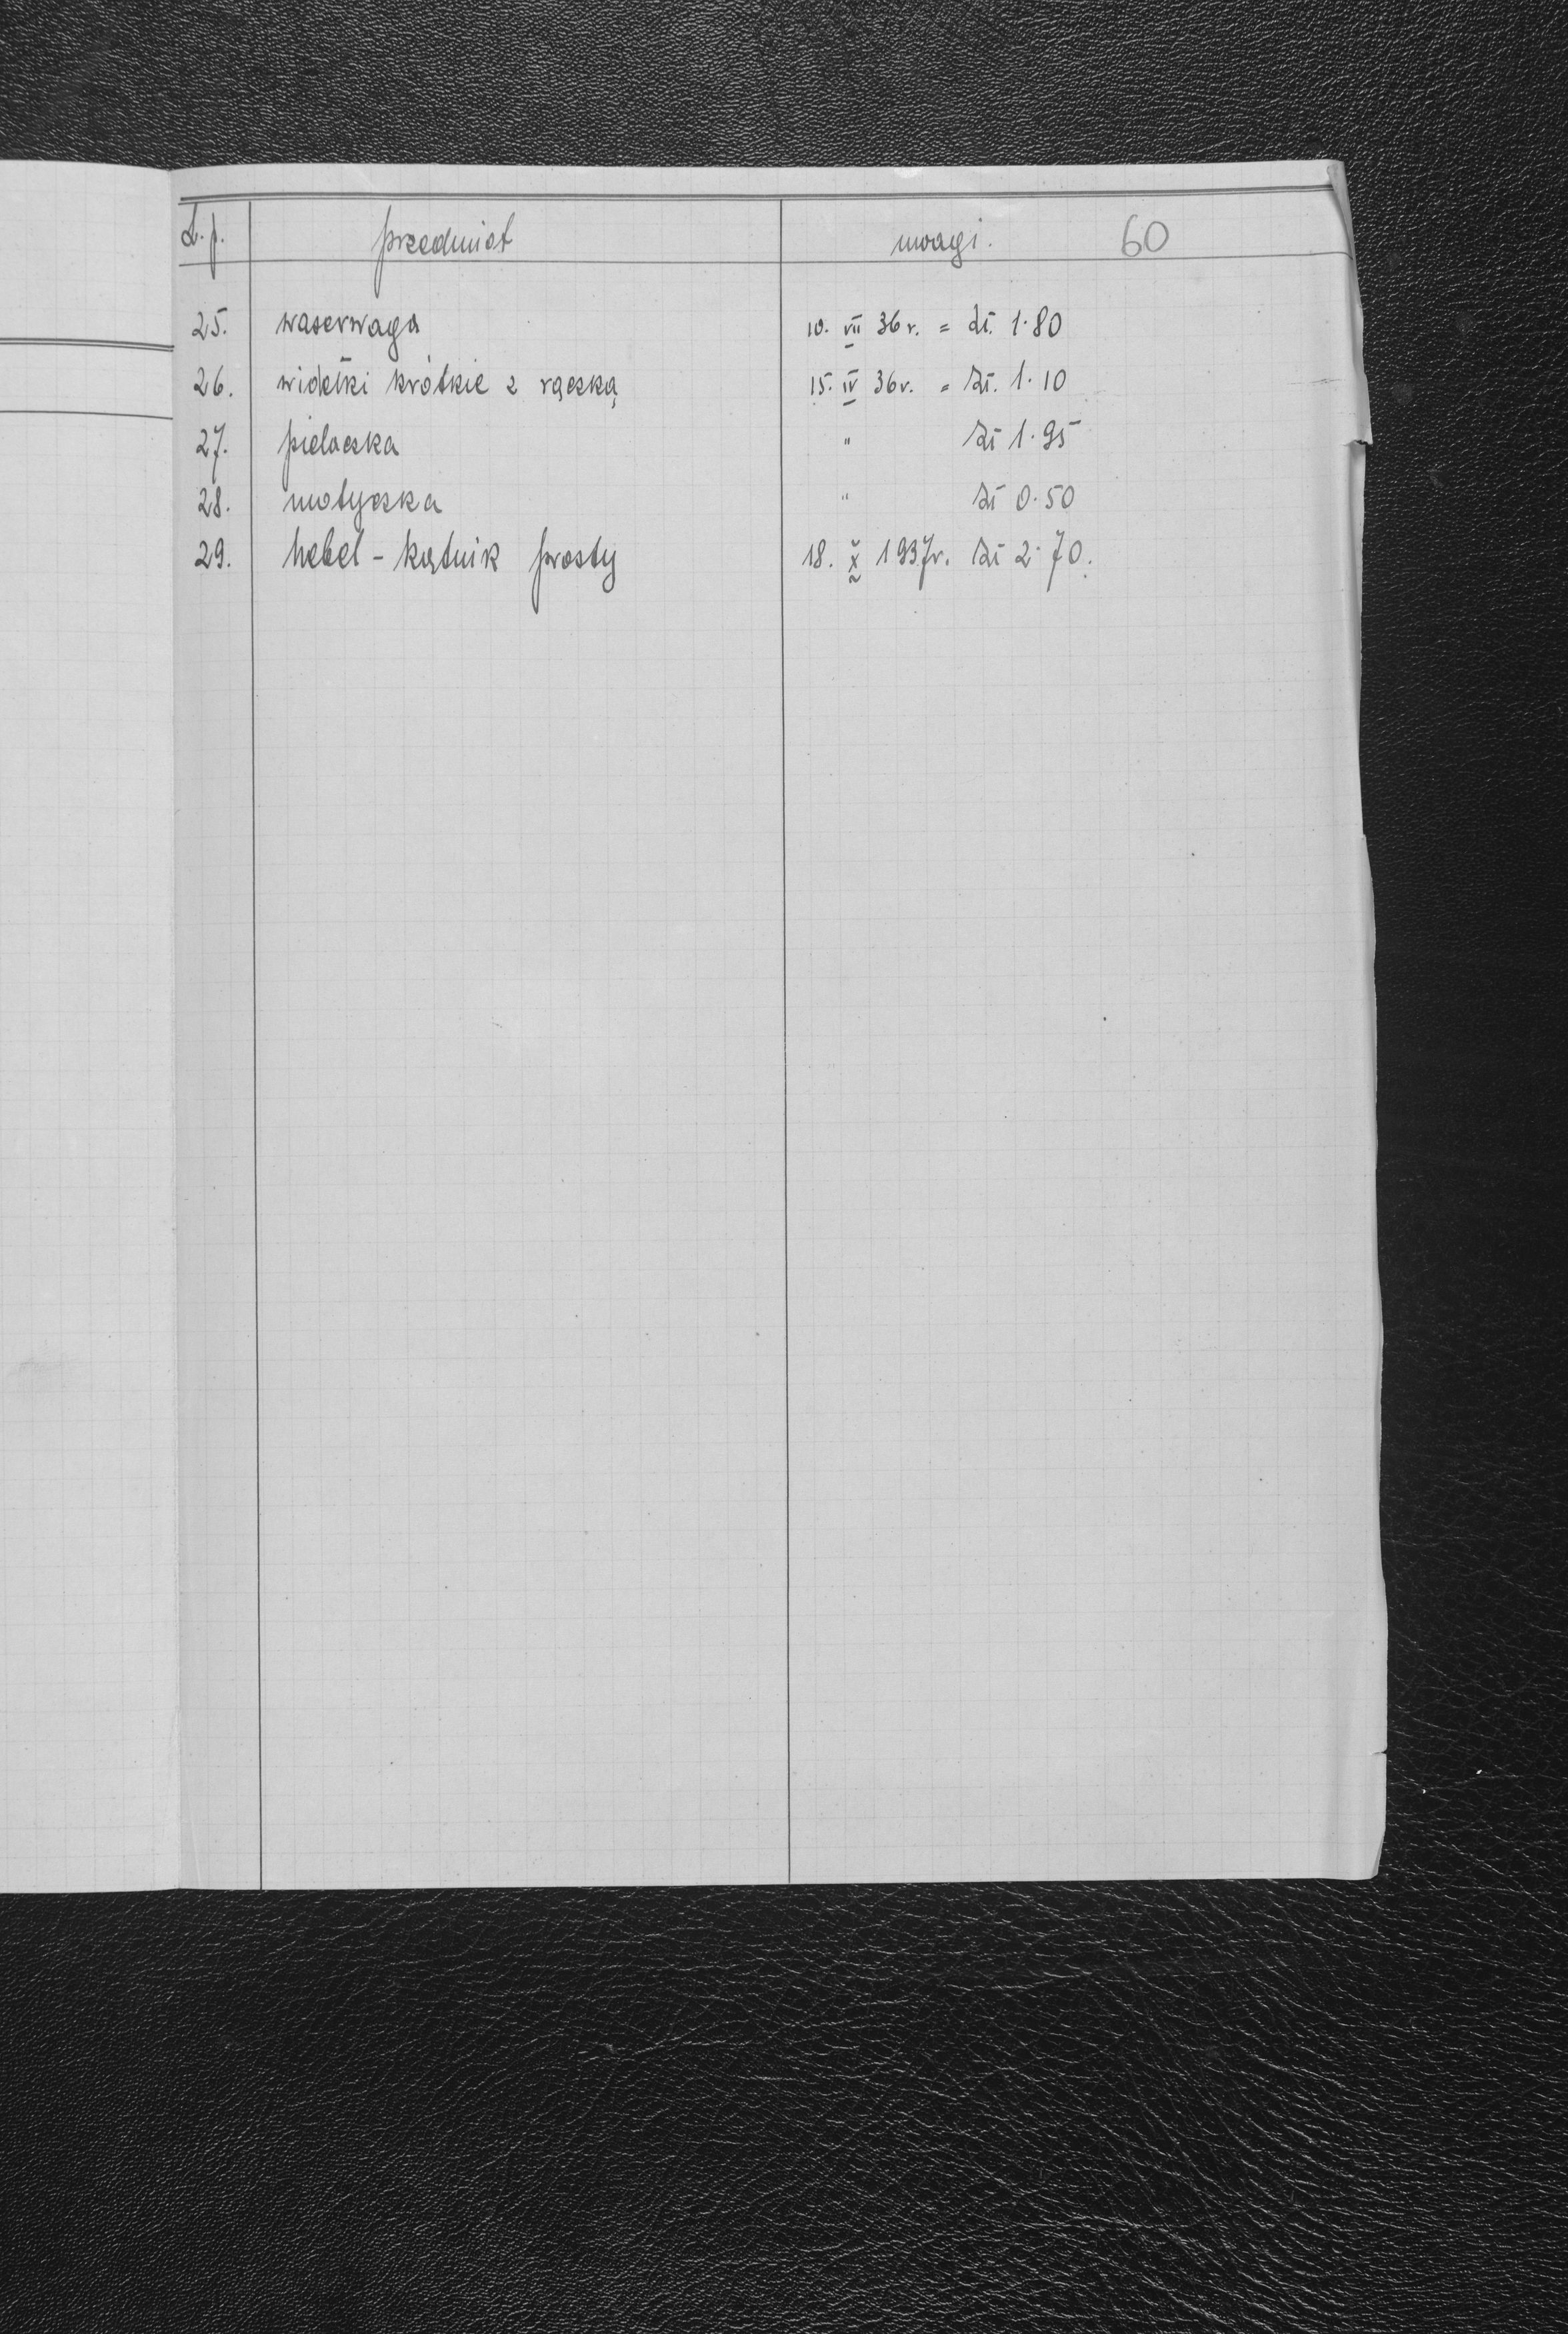 L.p. przedmiot uwagi. 60
25. waserwaga 10. VII 36 r. = zł. 1·80
26. widełki krótkie z rączką 15. IV 36 r. = zł. 1·10
27. pielaczka " zł 1·95
28. motyczka " zł 0·50
29. hebel - kątnik prosty 18. X 1937 r. zł 2·70.